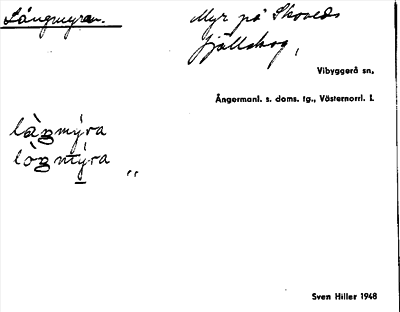 Långmyran.
Myr på Skoveds
fjällskog,
Vibyggerå sn.
Ångermanl. s. doms. tg., Västernorrl. l.
Sven Hiller 1948